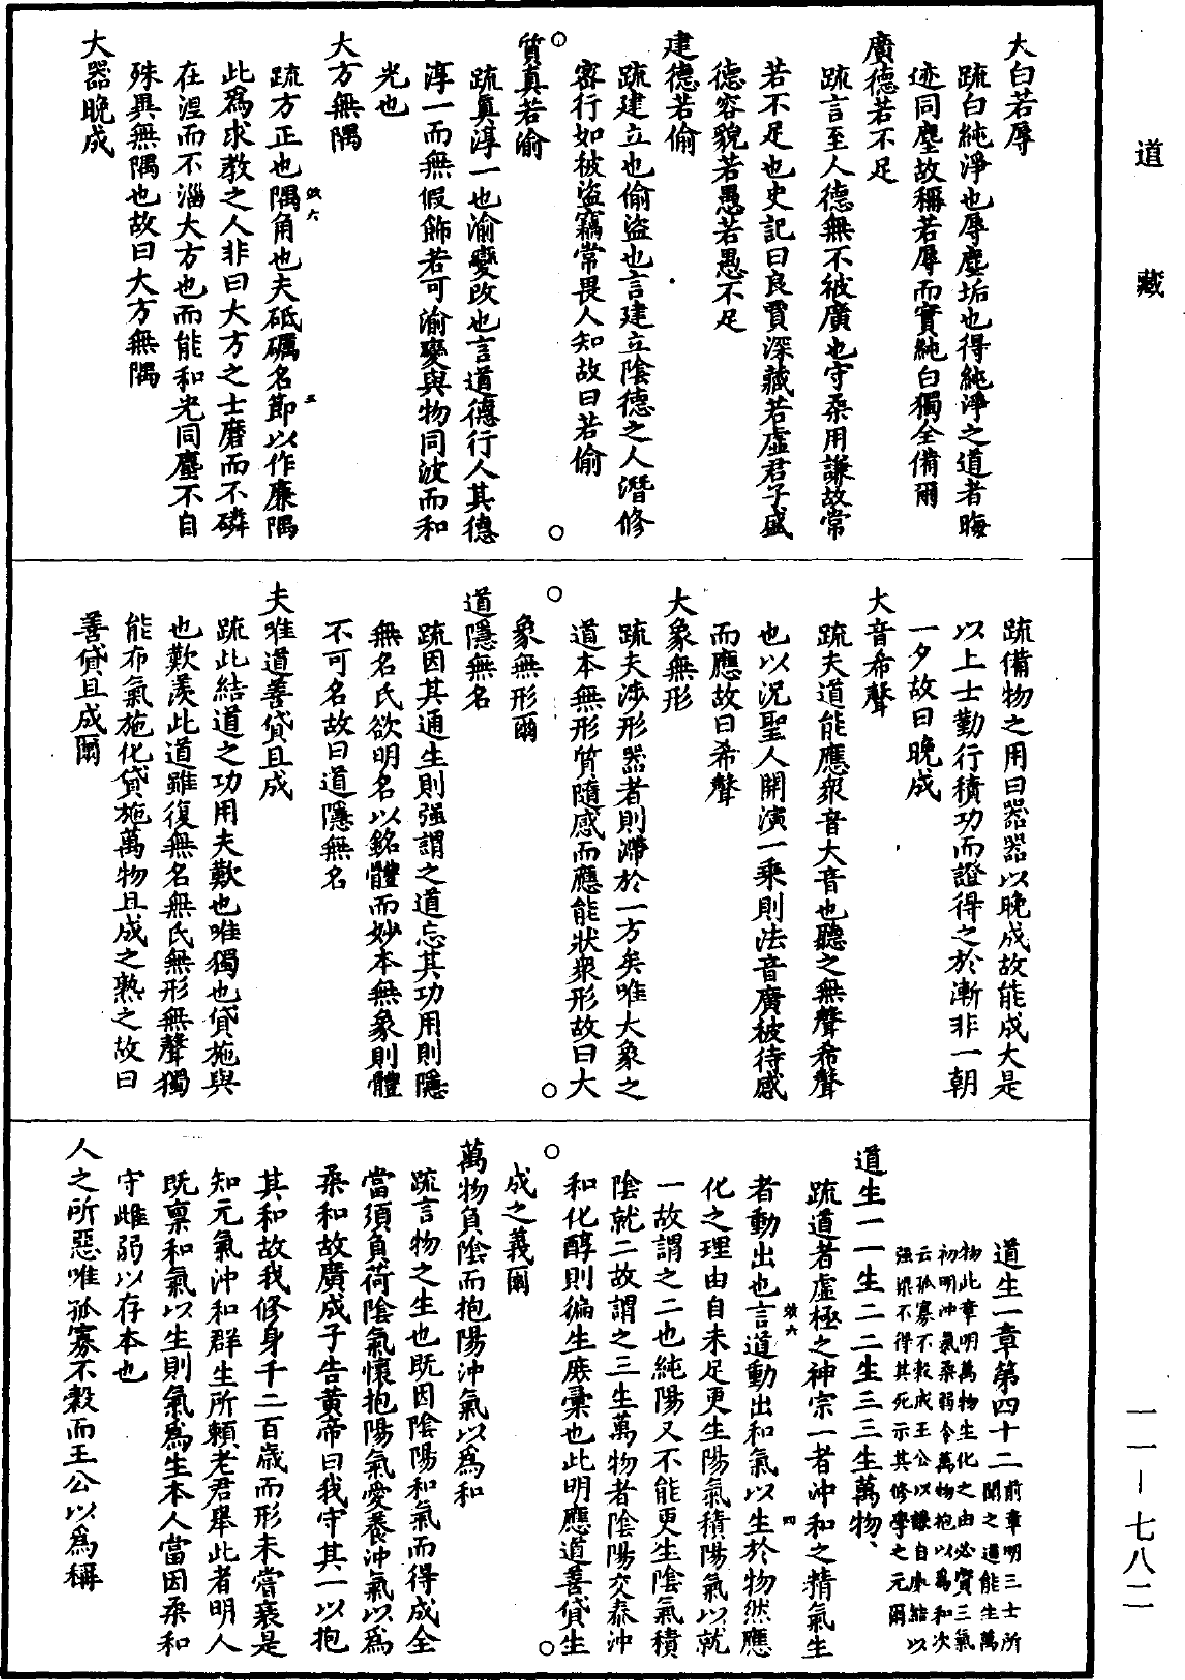 道藏
一一—七八二
大白若辱
疏白純淨也辱塵垢也得純淨之道者晦
迹同塵故稱若辱而實純白獨全備爾
廣德若不足
疏言至人德無不被廣也守柔用謙故常
若不足也史記曰良賈深藏若虛君子盛
德容貌若愚若愚不足
建德若偷
疏建立也偷盜也言建立陰德之人潛修
密行如被盜竊常畏人知故曰若偷
質真若渝
疏真淳一也渝變改也言道德行人其德
淳一而無假飾若可渝變與物同波而和
光也
大方無隅
疏方正也隅角也夫砥礪名節以作廉隅
此為求教之人非曰大方之士磨而不磷
在涅而不淄大方也而能和光同塵不自
殊異無隅也故曰大方無隅
大器晚成
疏備物之用曰器器以晚成故能成大是
以上士勤行積功而證得之於漸非一朝
一夕故曰晚成
大音希聲
疏夫道能應眾音大音也聽之無聲希聲
也以況聖人開演一乘則法音廣被待感
而應故曰希聲
大象無形
疏夫涉形器者則滯於一方矣唯大象之
道本無形質隨感而應能狀眾形故曰大
象無形爾
道隱無名
疏因其通生則强謂之道忘其功用則隱
無名氏欲明名以銘體而妙本無象則體
不可名故曰道隱無名
夫唯道善貸且成
疏此結道之功用夫歎也唯獨也貸施與
也歎羨此道雖復無名無氏無形無聲獨
能布氣施化貸施萬物且成之熟之故曰
善貸且成爾
道生一章第四十二前章明三士所聞之道能生萬
物此章明萬物生化之由必資三氣
初明沖氣柔弱令萬物抱以為和次
云孤寡不穀成王公以謙自牧結以
强梁不得其死示其修學之元爾
道生一一生二二生三三生萬物、
疏道者虛極之神宗一者沖和之精氣生
者動出也言道動出和氣以生於物然應
化之理由自未足更生陽氣積陽氣以就
一故謂之二也純陽又不能更生陰氣積
陰就二故謂之三生萬物者陰陽交泰沖
和化醇則徧生庶彙也此明應道善貸生
成之義爾
萬物負陰而抱陽沖氣以為和
疏言物之生也既因陰陽和氣而得成全
當須負荷陰氣懷抱陽氣愛養沖氣以為
柔和故廣成子告黃帝曰我守其一以抱
其和故我修身千二百歲而形未嘗衰是
知元氣沖和群生所賴老君舉此者明人
既稟和氣以生則氣為生本人當因柔和
守雌弱以存本也
人之所惡唯孤寡不穀而王公以為稱